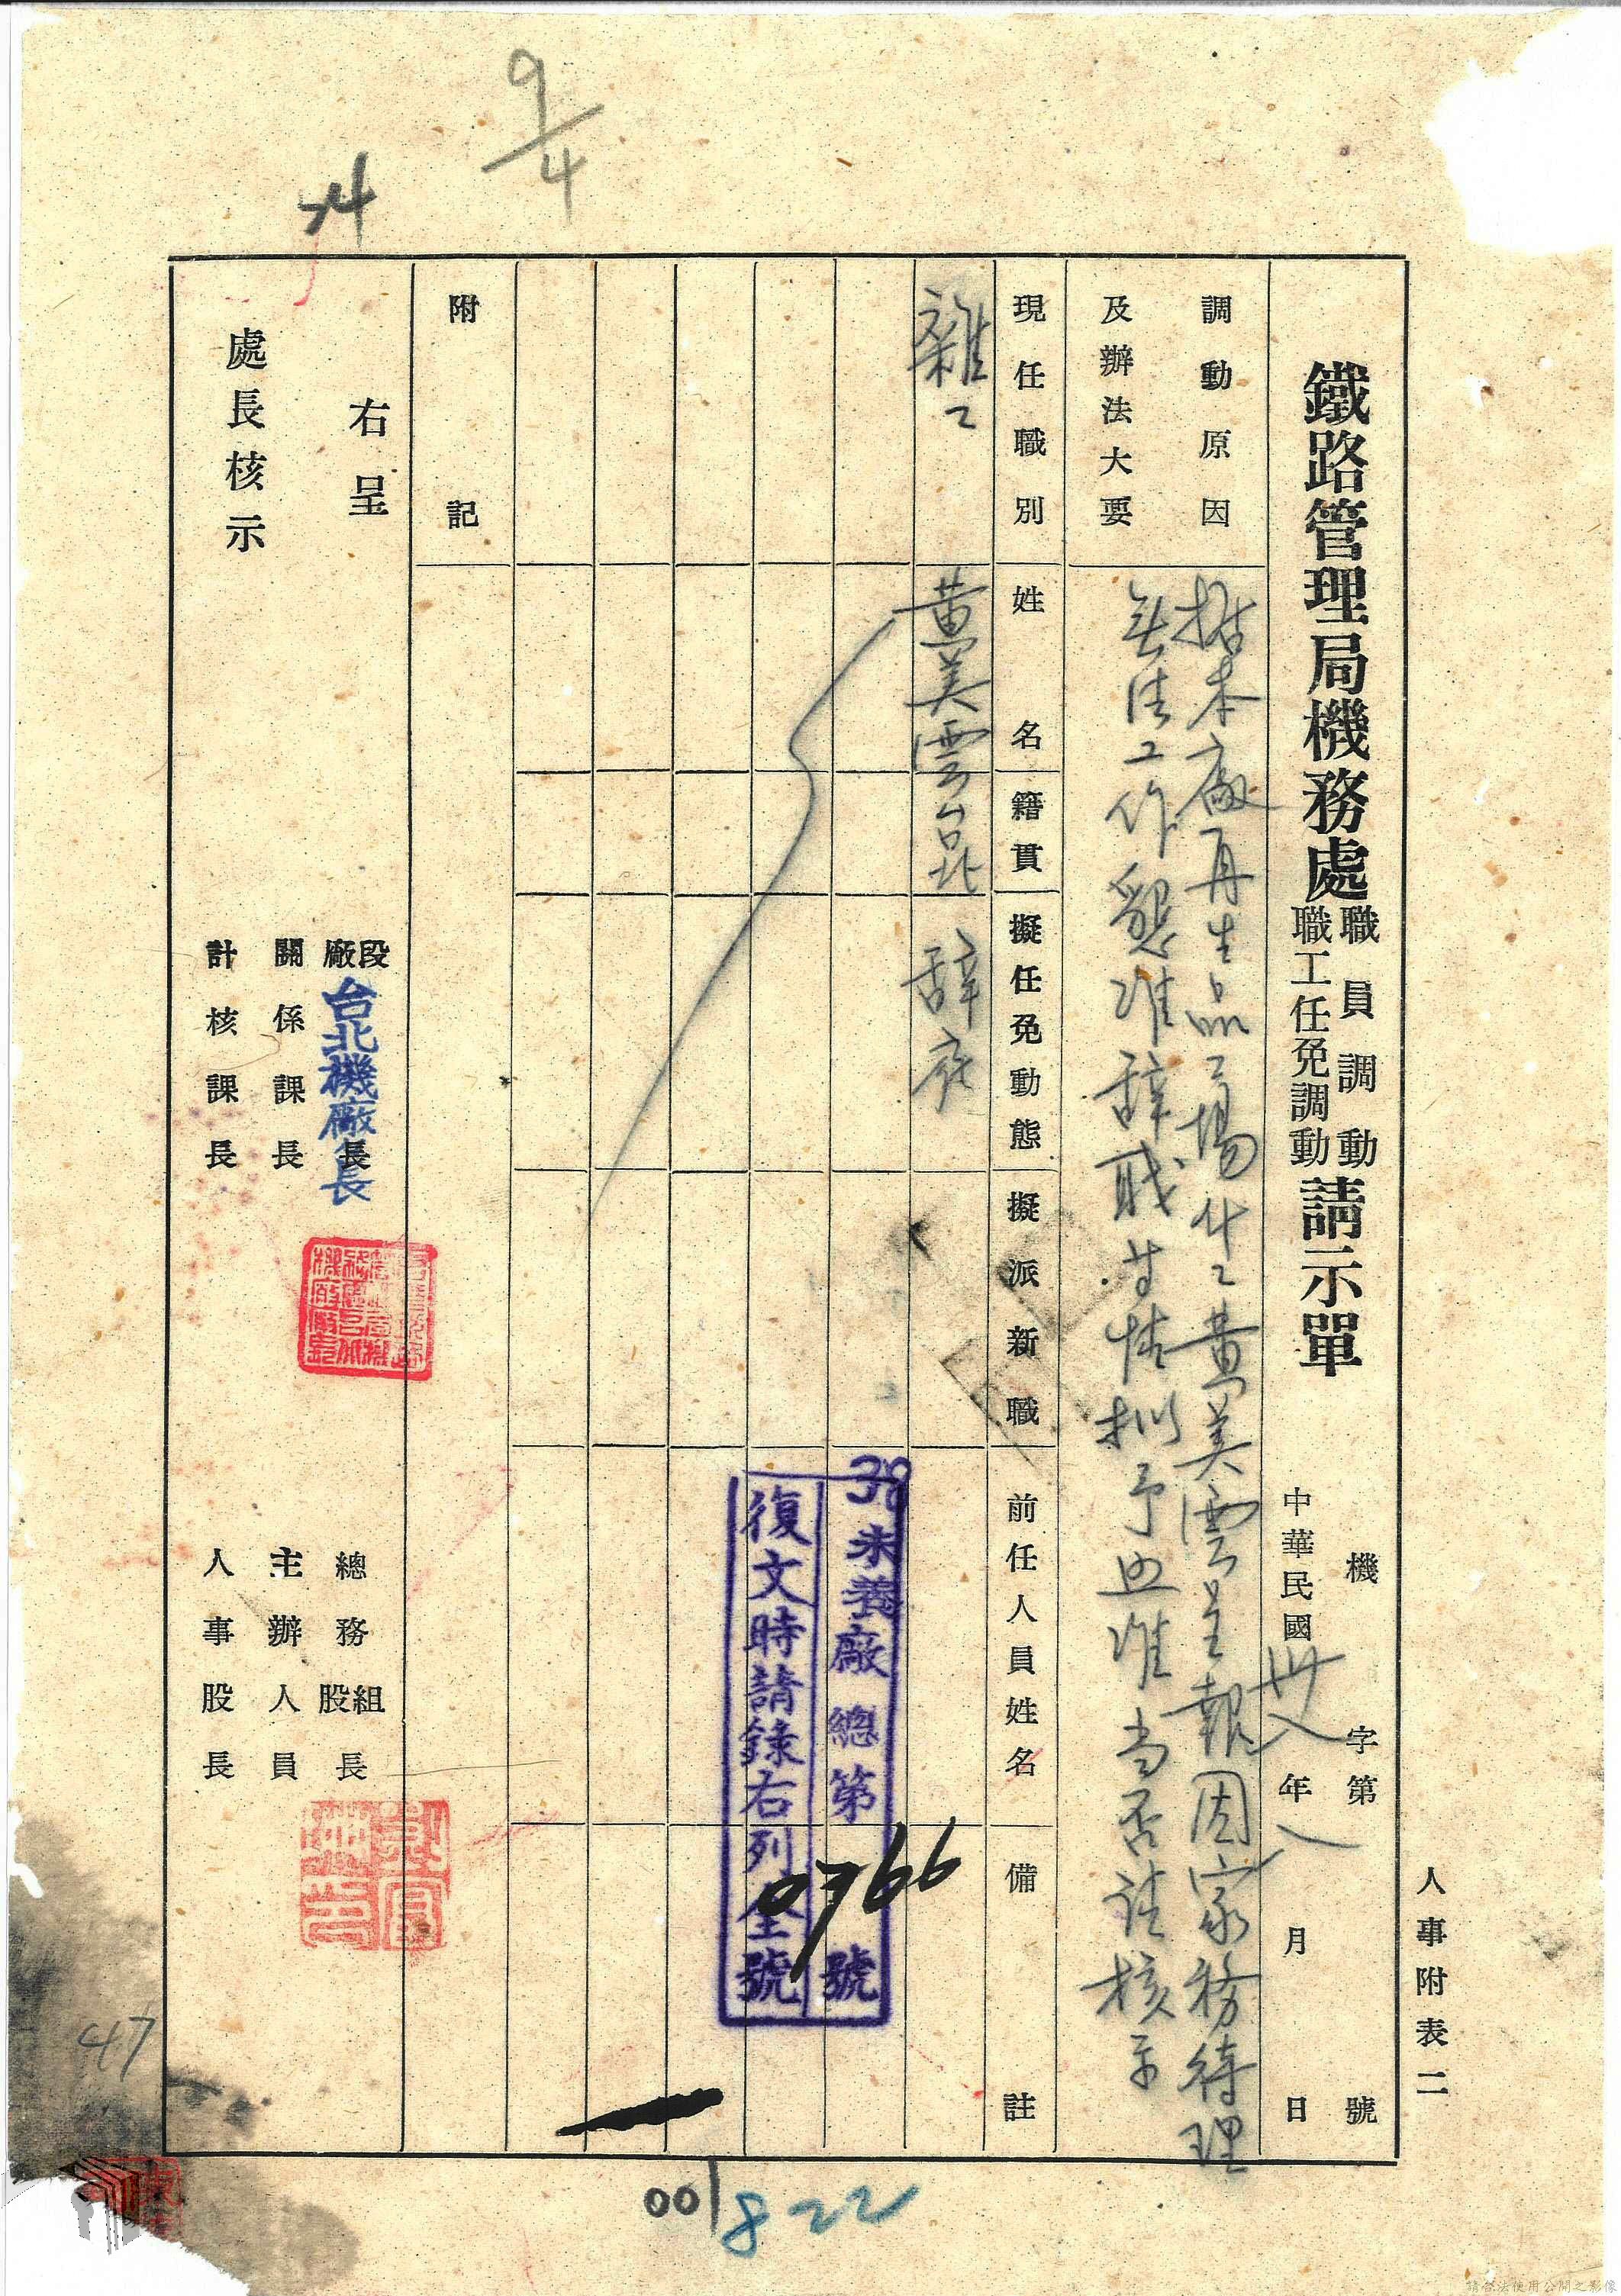 人事附表二
鐵路管理局機務處
職員調動
職工任免調動
請示單
機 字第 號
中華民國卅八年八月 日
調動原因
及辦法大要
據本廠再生品工場什工黃美雲呈報因家務待理
無法工作懇准辭職等情擬予照准當否請核示
現任職別 姓名 籍貫 擬任免動態 擬派新職 前任人員姓名 備註
雜工 黃美雲 台北 辭底
38未養廠總第0766號
復文時請錄右列全號
附記
右呈
處長核示
段
廠
台北機廠長
長
關係課長
計核課長
總務
組
股
長
主辦人員
人事股長
9/4
47
001
822
請合法使用公開之影像